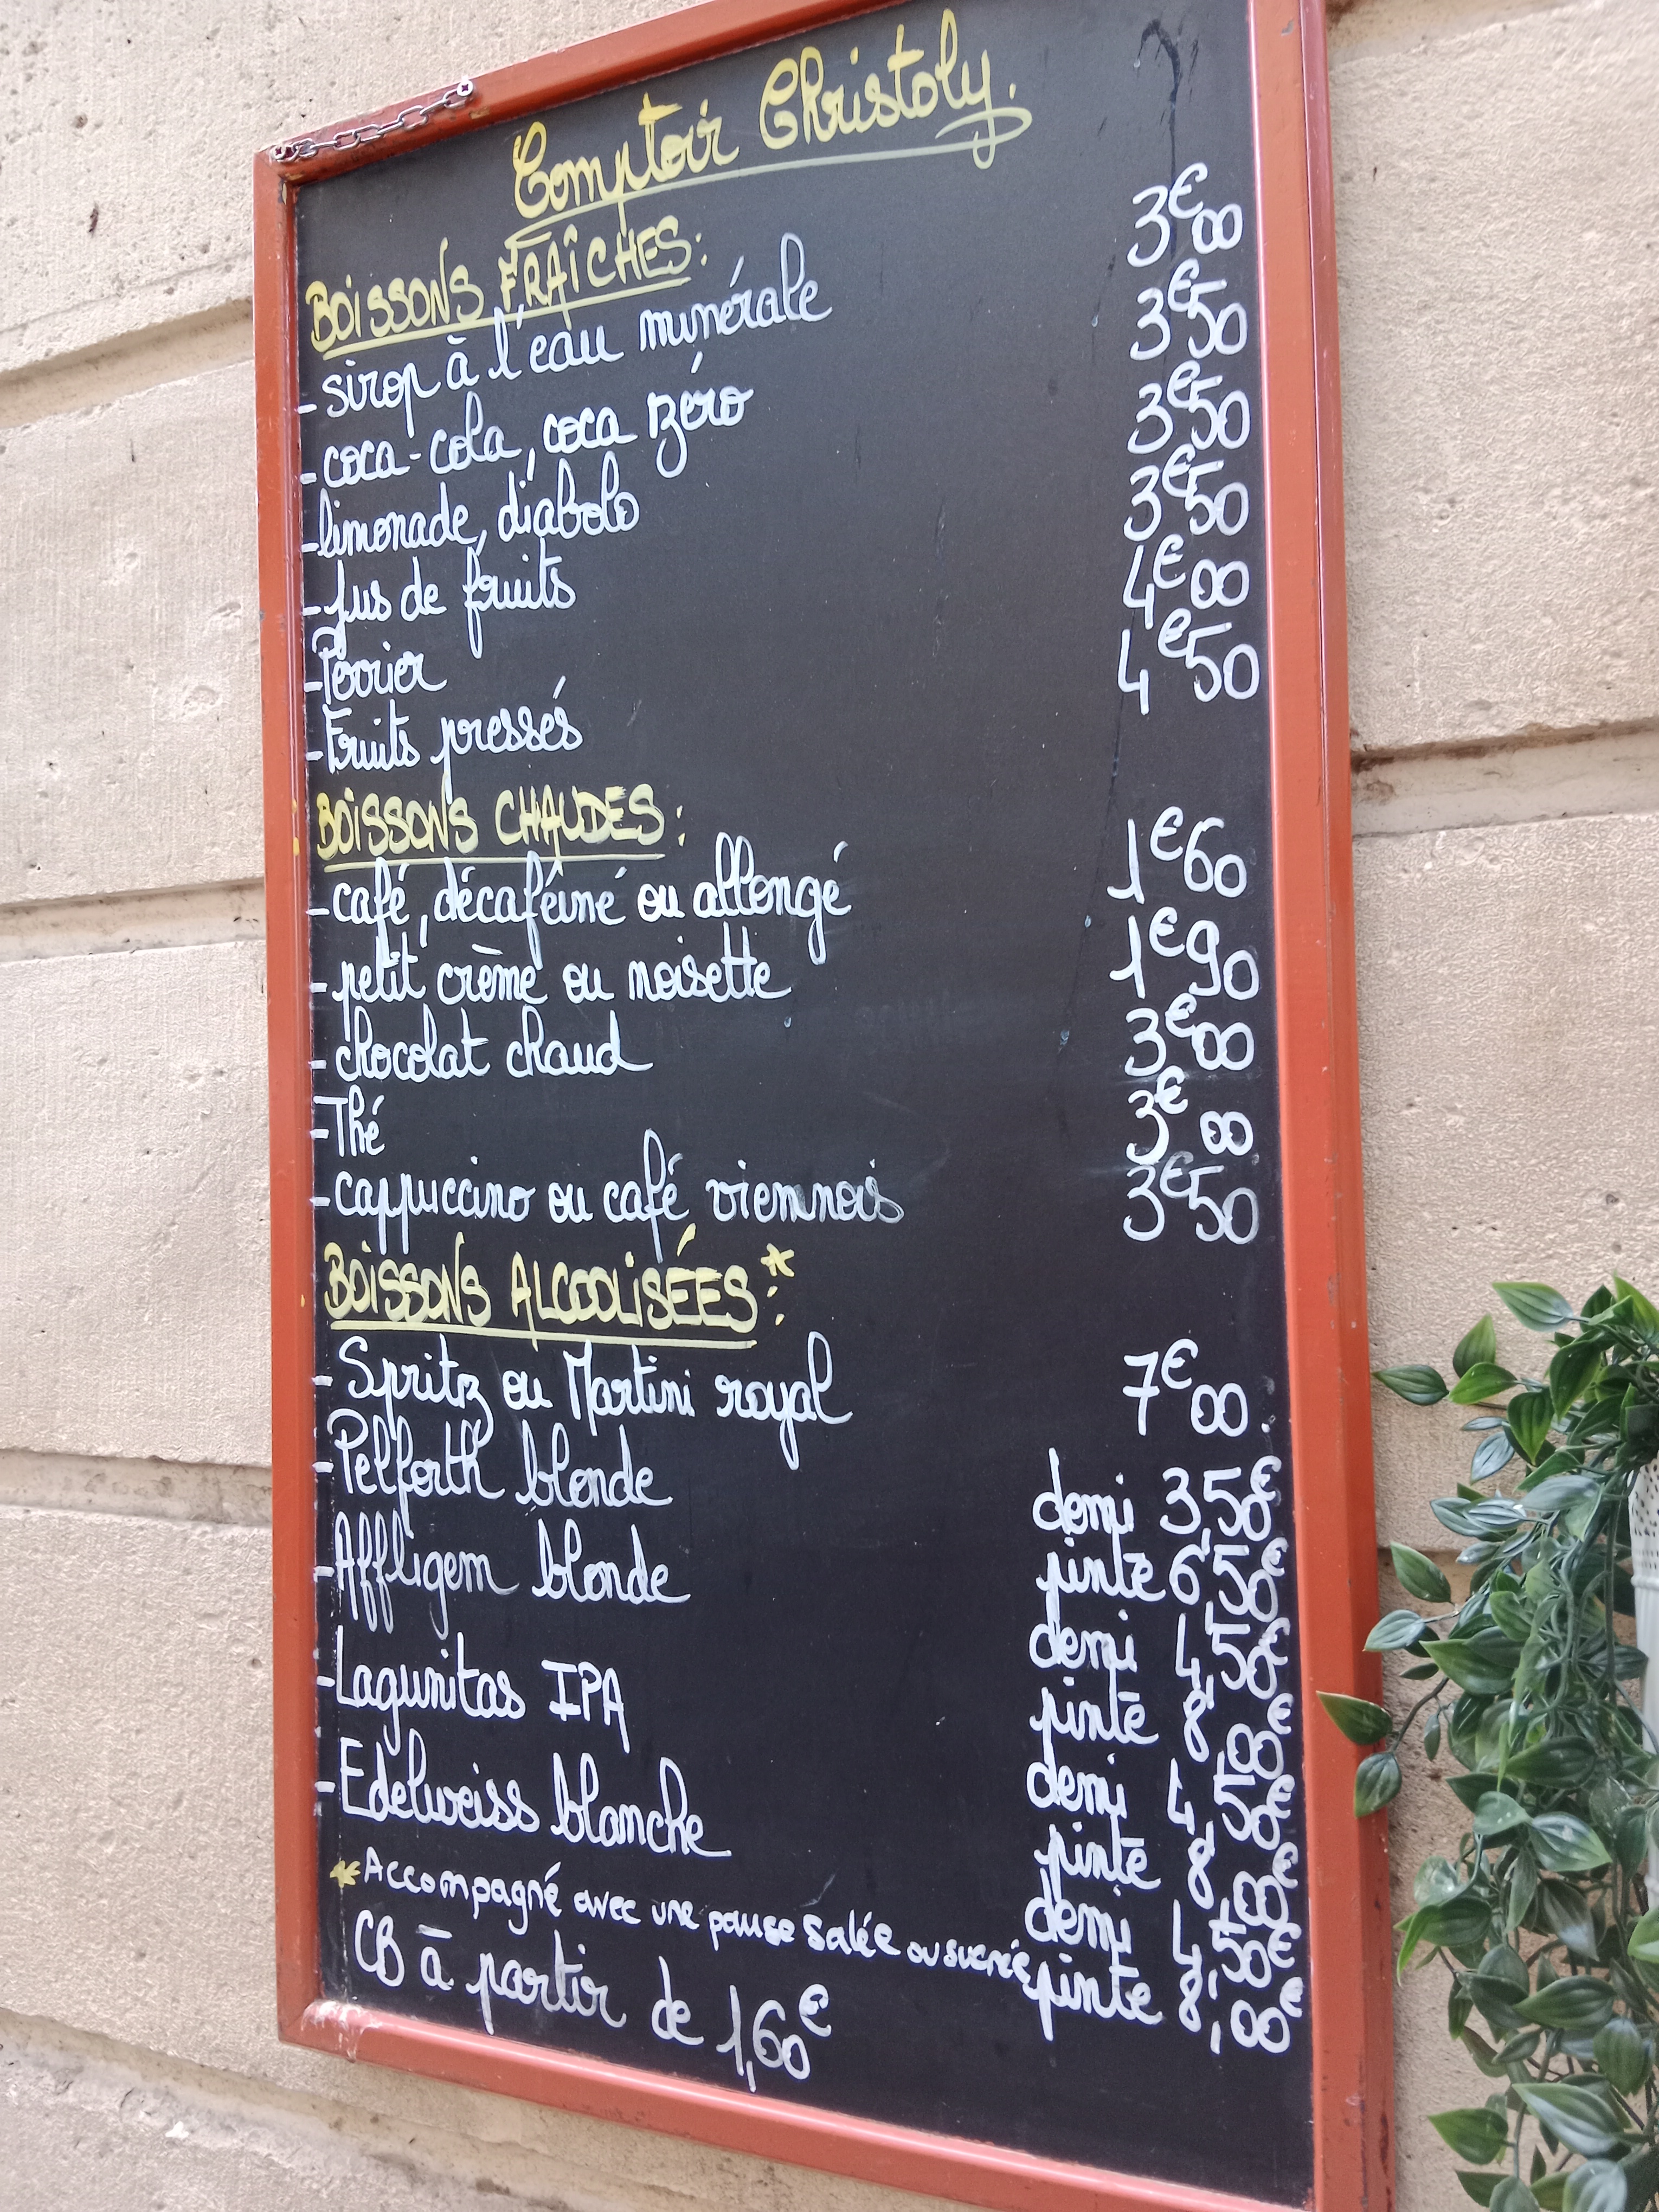 Comptoir Christoly.
BOISSONS FRAÎCHES:
- sirop à l'eau minérale 3€00
- coca-cola, coca zéro 3€50
- limonade, diabolo 3€50
- jus de fruits 3€50
- Perrier 4€00
- Fruits pressés 4€50
BOISSONS CHAUDES:
- café, décaféiné ou allongé 1€60
- petit crème ou noisette 1€90
- chocolat chaud 3€00
- Thé 3€00
- cappuccino ou café viennois 3€50
BOISSONS ALCOOLISÉES*:
- Spritz ou Martini royal 7€00
- Pelforth blonde demi 3,50€
pinte 6,50€
- Affligem blonde demi 4,50€
pinte 8,00€
- Lagunitas IPA demi 4,50€
pinte 8,00€
- Edelweiss blanche demi 4,50€
pinte 8,00€
*Accompagné avec une pause salée ou sucrée
CB à partir de 1,60€